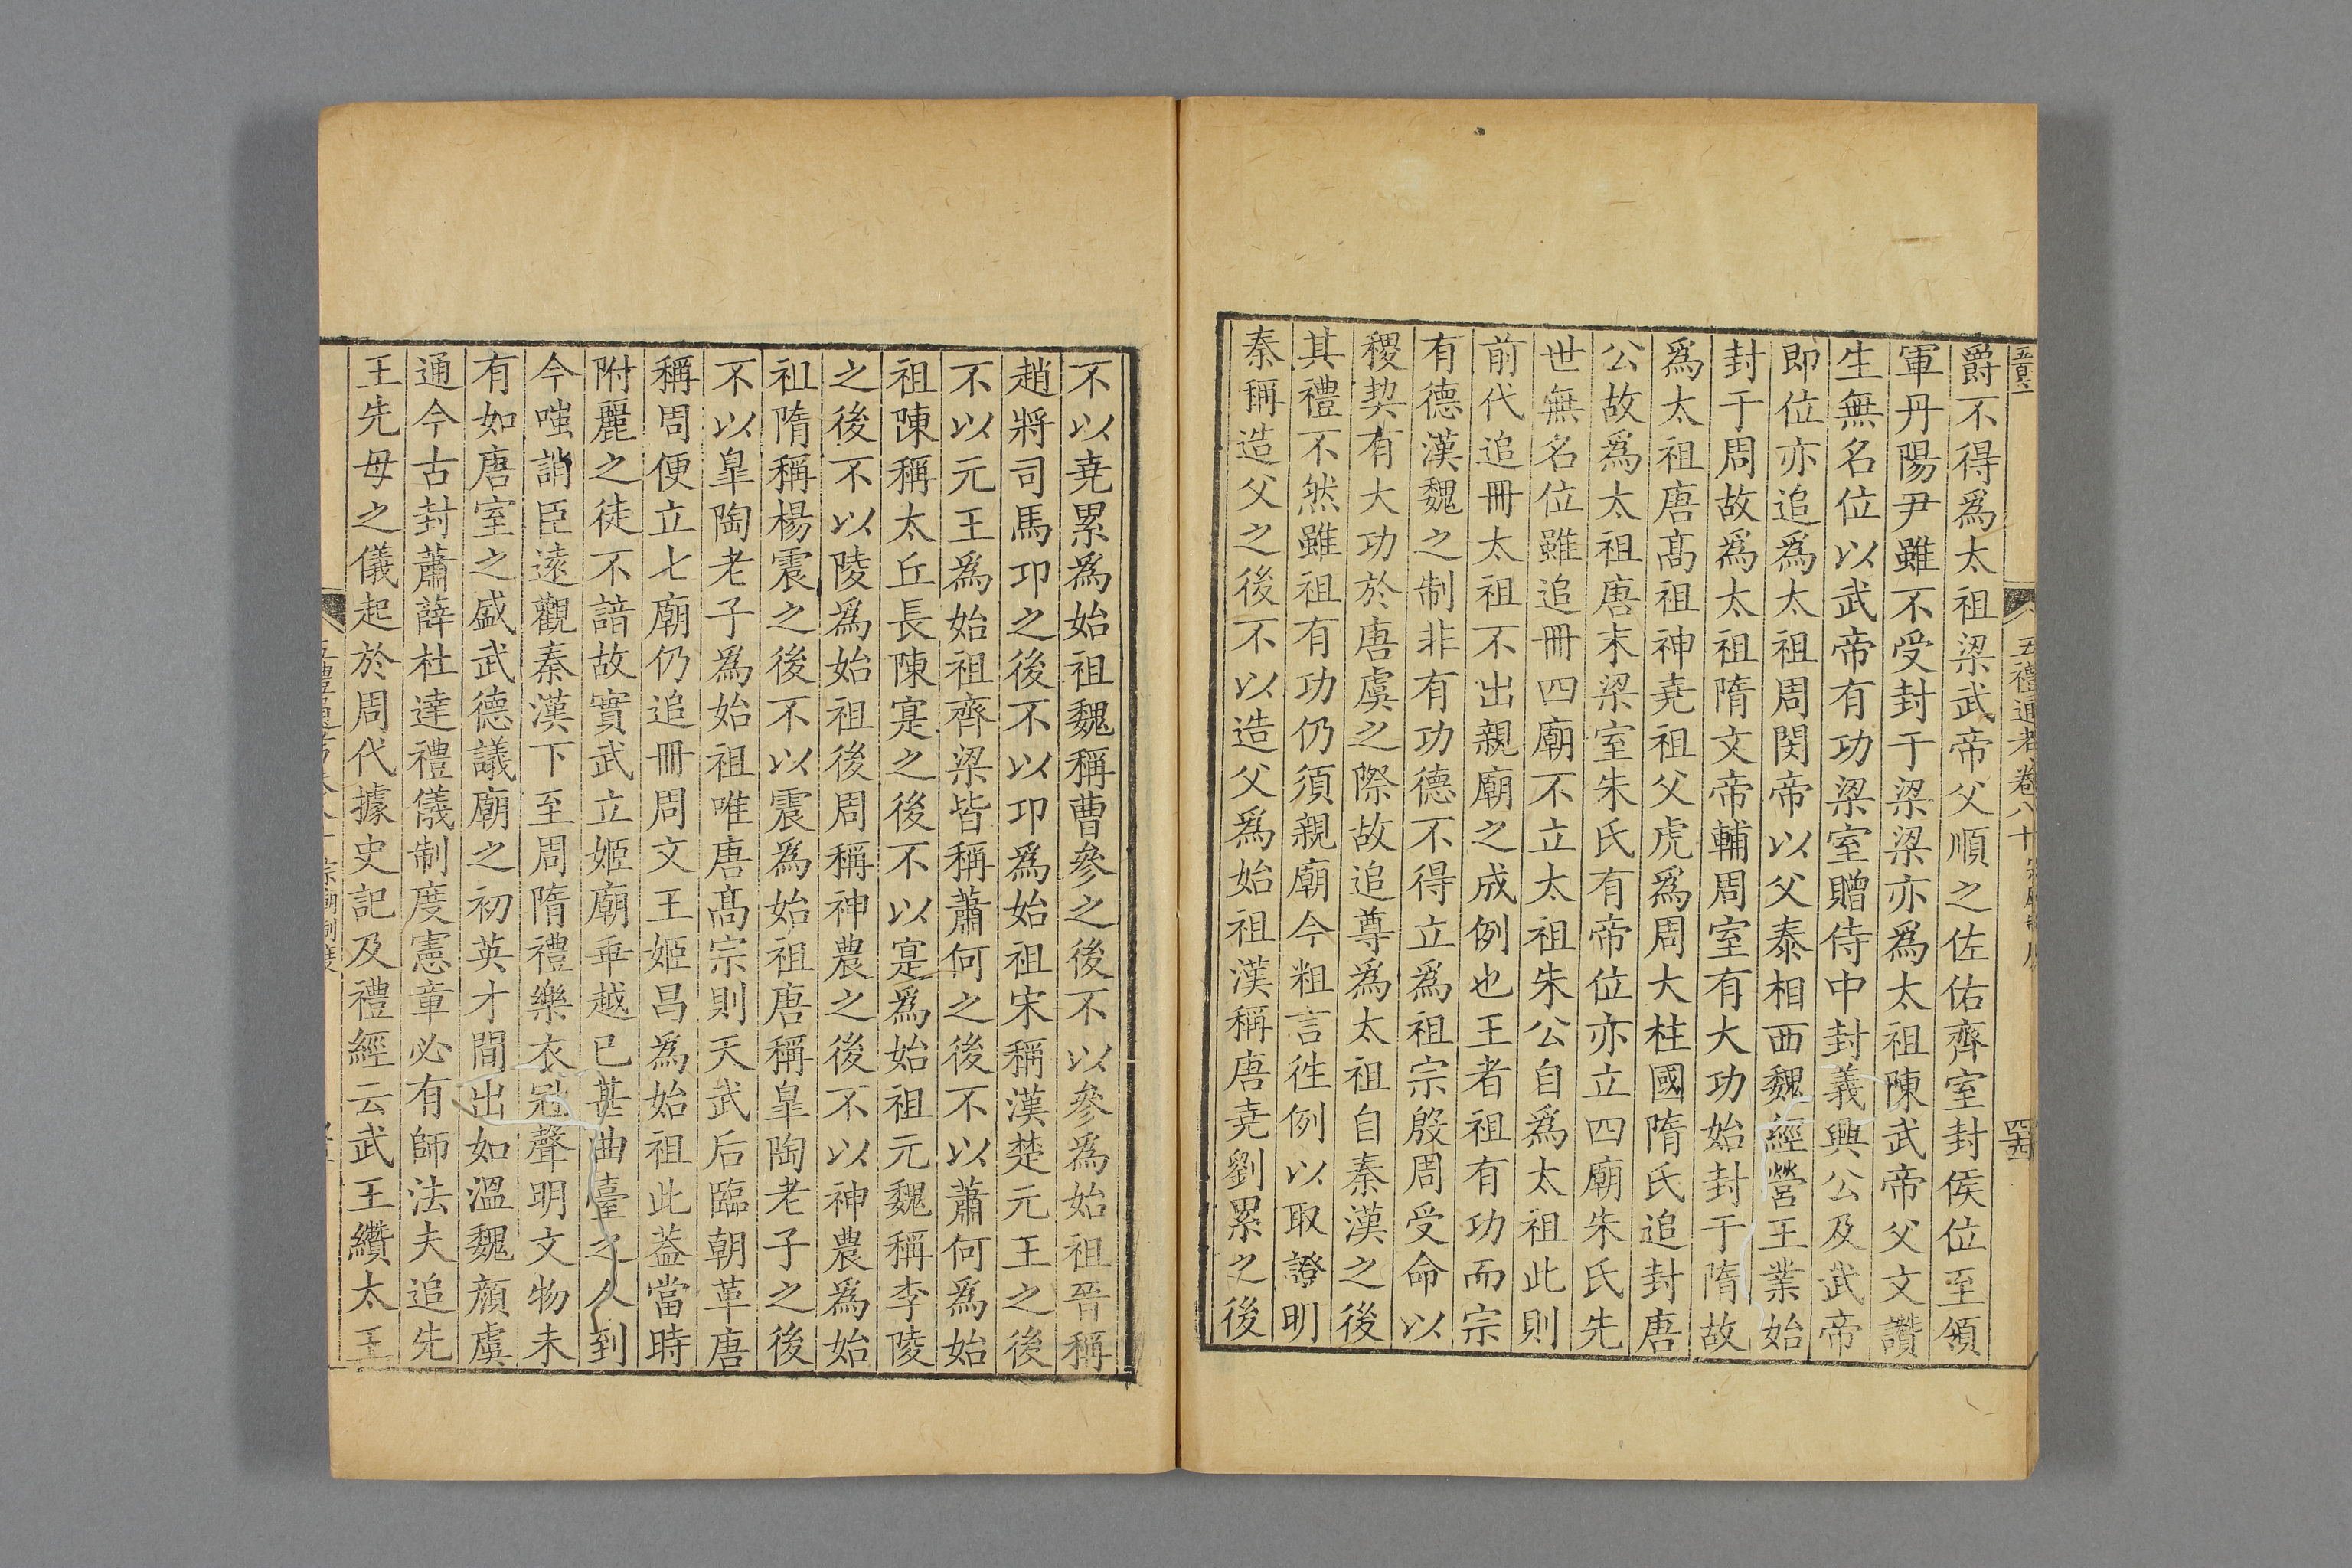 五禮通考卷八十
爵不得爲太祖梁武帝父順之佐佑齊室封侯位至領
軍丹陽尹雖不受封于梁梁亦爲太祖陳武帝父文讚
生無名位以武帝有功梁室贈侍中封義興公及武帝
即位亦追爲太祖周閔帝以父泰相西魏經營王業始
封于周故爲太祖隋文帝輔周室有大功始封于隋故
爲太祖唐髙祖神堯祖父虎爲周大柱國隋氏追封唐
公故爲太祖唐末梁室朱氏有帝位亦立四廟朱氏先
世無名位雖追冊四廟不立太祖朱公自爲太祖此則
前代追冊太祖不出親廟之成例也王者祖有功而宗
有德漢魏之制非有功德不得立爲祖宗殷周受命以
稷契有大功於唐虞之際故追尊爲太祖自秦漢之後
其禮不然雖祖有功仍須親廟今粗言徃例以取證明
秦稱造父之後不以造父爲始祖漢稱唐堯劉累之後
不以堯累爲始祖魏稱曹參之後不以參爲始祖晉稱
趙將司馬卬之後不以卬爲始祖宋稱漢楚元王之後
不以元王爲始祖齊梁皆稱蕭何之後不以蕭何爲始
祖陳稱太丘長陳寔之後不以寔爲始祖元魏稱李陵
之後不以陵爲始祖後周稱神農之後不以神農爲始
祖隋稱楊震之後不以震爲始祖唐稱臯陶老子之後
不以臯陶老子爲始祖唯唐髙宗則天武后臨朝革唐
稱周便立七廟仍追冊周文王姬昌爲始祖此葢當時
附麗之徒不諳故實武立姬廟乖越已甚曲臺之人到
今嗤誚臣遠觀秦漢下至周隋禮樂衣冠聲明文物未
有如唐室之盛武德議廟之初英才間出如溫魏顏虞
通今古封蕭薛杜達禮儀制度憲章必有師法夫追先
王先母之儀起於周代據史記及禮經云武王纘太王